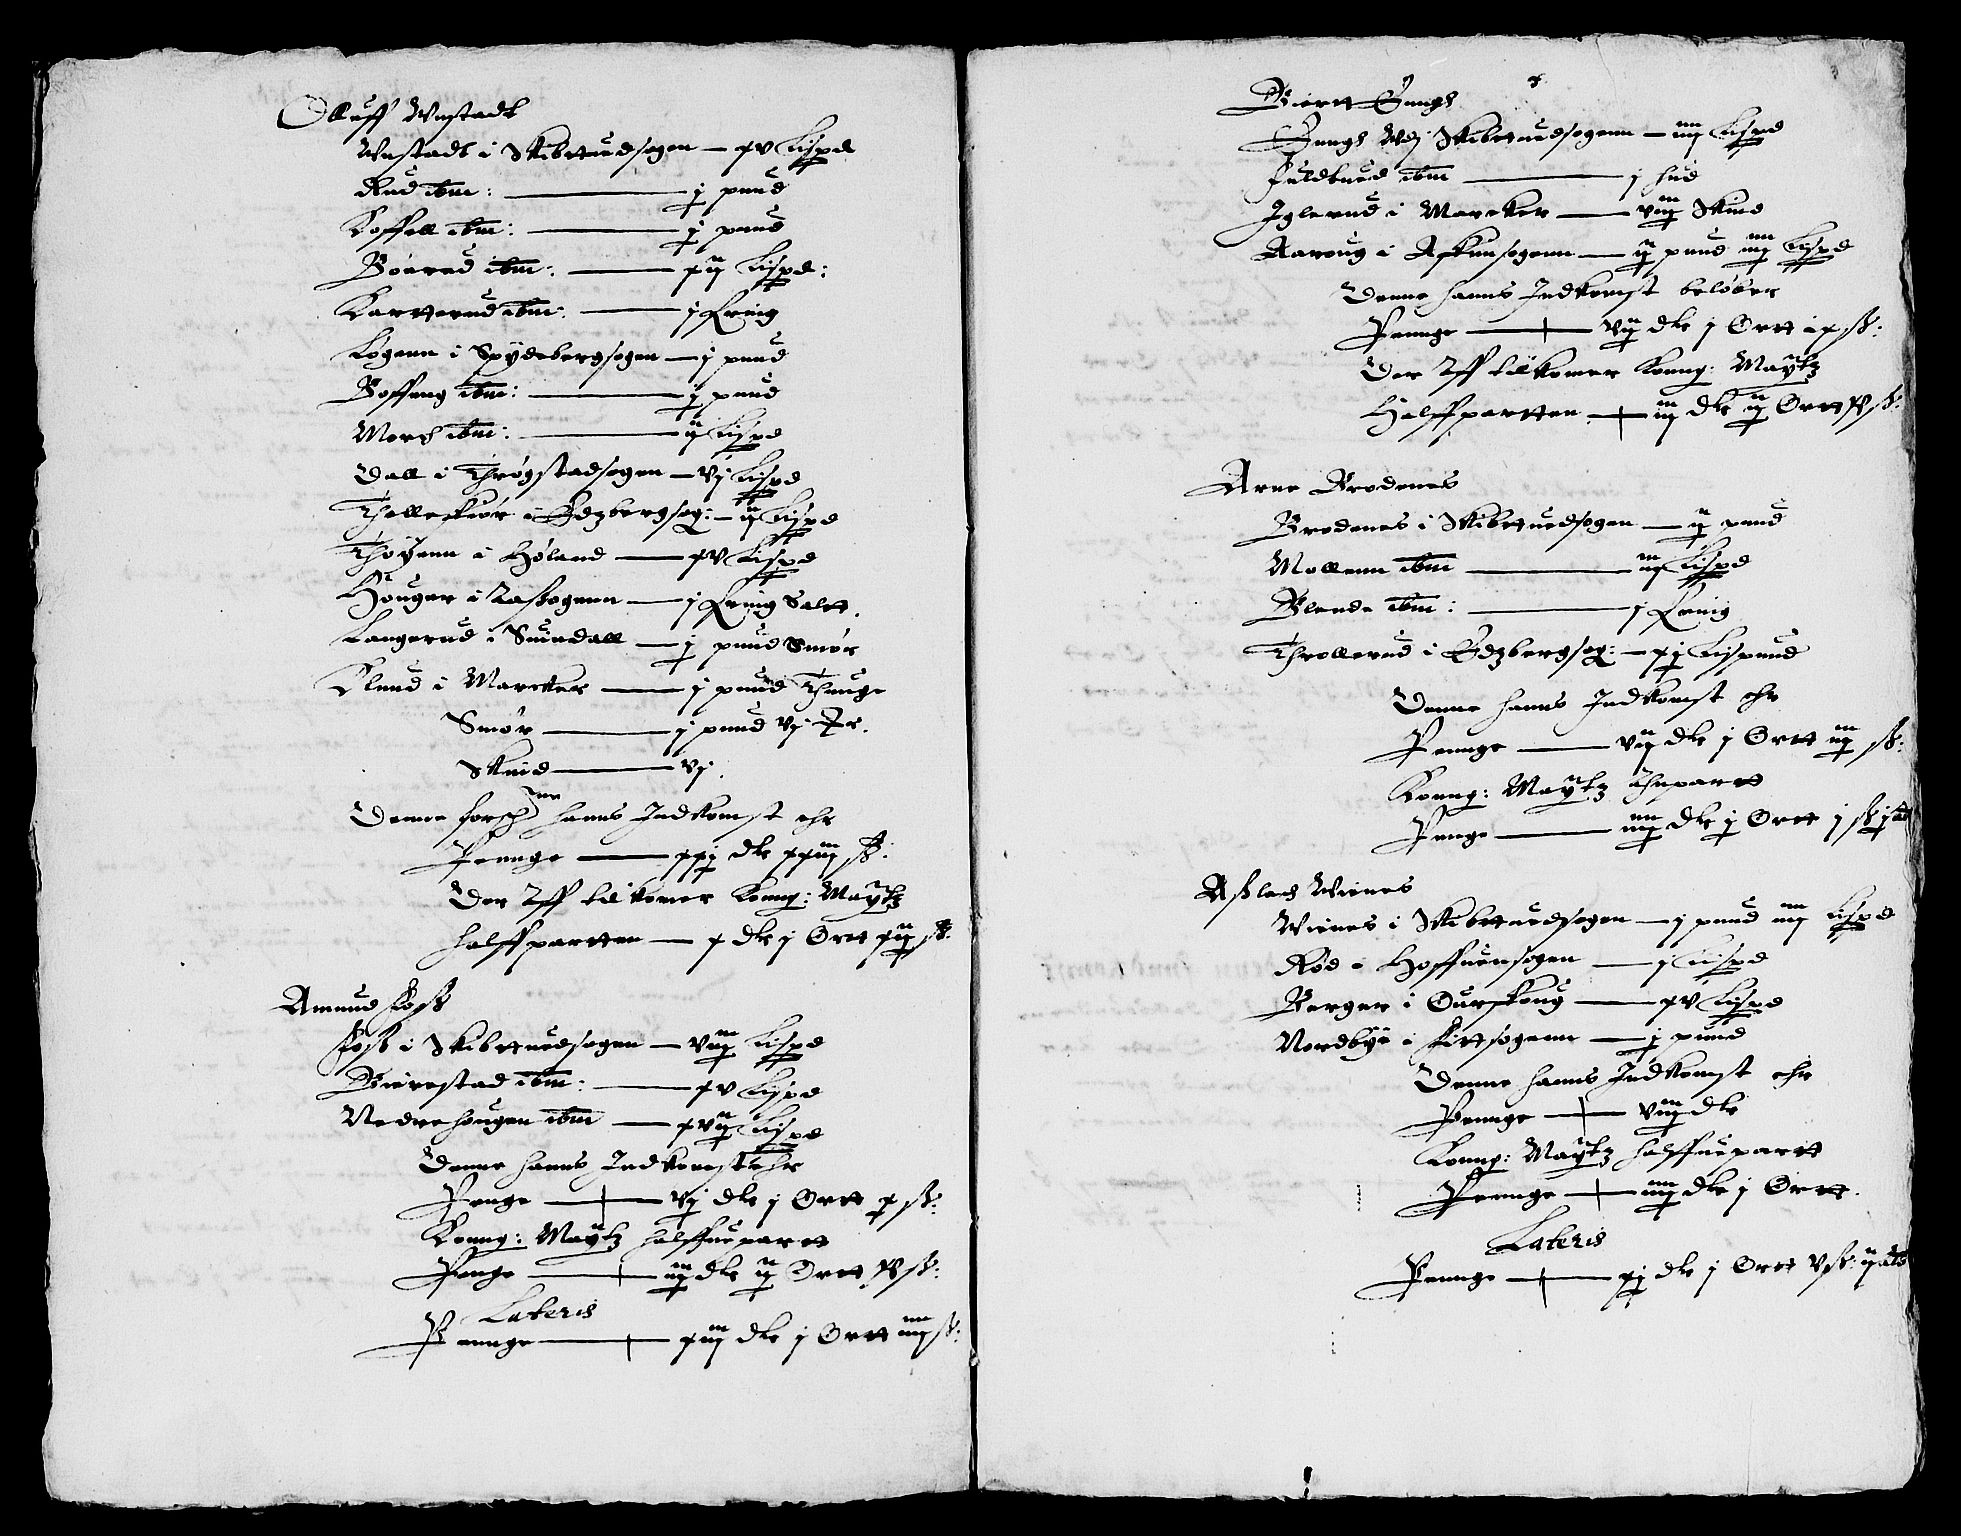 Olluff Wnstadt
Wnstadt i Skibtuedsogen — xv Lispd
Rud ibm: — j pund
Koffell ibm: — j pund
Börrud ibm: — xij Lispd:
Kartterud ibm: — j Fring
Logenn i Spydebergsogen — j pund
Boffeng ibm: — j pund
Morch ibm: — ij Lispd
Dall i Thrögstadsogen — vj Lispd
Thollefkiör i Edzbergsog: — ij Lispd
Thoÿenn i Höland — xv Lispd
Houger i Raksogenn — j Fring Saltt.
Langerud i Suindall — j pund Smör
Klund i Marcker — j pund Thunge
Smör — j pund vj Fr.
Skind — vj.
Denne forsch: hanns Jndkomst ehr
Pennge — xxj dlr xxiij sk:
Der Aff tilkomer Konng: Maÿtz
halffpartten — x dlr j Ortt xij sk:
Amund Foss
Foss i Skibttuedsogen — viij Lispd
Bierestad ibm: — xv Lispd
Nedrehougen ibm — xvij Lispd
Denne hanns Jndkomst ehr
Penge — vj dlr j Ortt x sk:
Konng: Maÿtz halffuepartt
Penge — iij dlr ij Ortt sk:
Lateris
Pennge — xiij dlr j Ortt iiij sk:
Biertt Eungh
Eungh Wdj Skibttuedsogenn — iiij Lispd
Fuldtued ibm — j hud
Jglerud i Marcker — viij Skind
Aaroug i Askimsogenn — ij pund iiij Lispd
Denne hanns Jndkomst belöber
Pennge — vij dlr j Ortt ix sk:
Der Aff tilkomer Konng: Maÿtz
Halffpartten — iij dlr ij Ortt sk:
Arne Brodenes
Brodenes i Skibttuedsogen — ij pund
Mollenn ibm — iij Lispd
Blende ibm: — j Fring
Throllerud i Edzbergsog: — xj Lispund
Denne hanns Jndkomst ehr
Pennge — vij dlr j Ortt iij sk:
Konng: Maÿtz Ihrpartt
Penge — iiij dlr j Ortt j sk j alb
Asslach Wienes
Wienes i Skibttuedsogen — j pund iiij Lispd
Röd i Hoffuensogen — j Lispd
Berger i Ourskoug — xv Lispd
Nordbÿe i Fittsogenn — j pund
Denne hanns Jndkomst ehr
Pennge — viij dlr
Konng: Maÿtz halffuepartt
Pennge — iiij dlr j Ortt.
Lateris
Pennge — xj dlr j Ortt v sk: ij alb